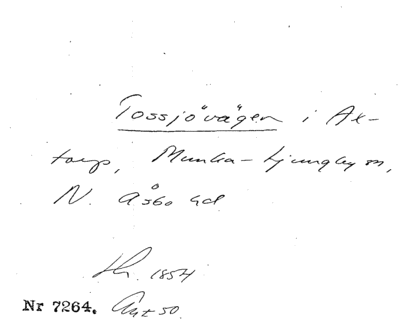 Tossjövägen i Ax-
torp, Munka-Ljungby sn,
N. Åsbo hd
1854
Nr 7264.